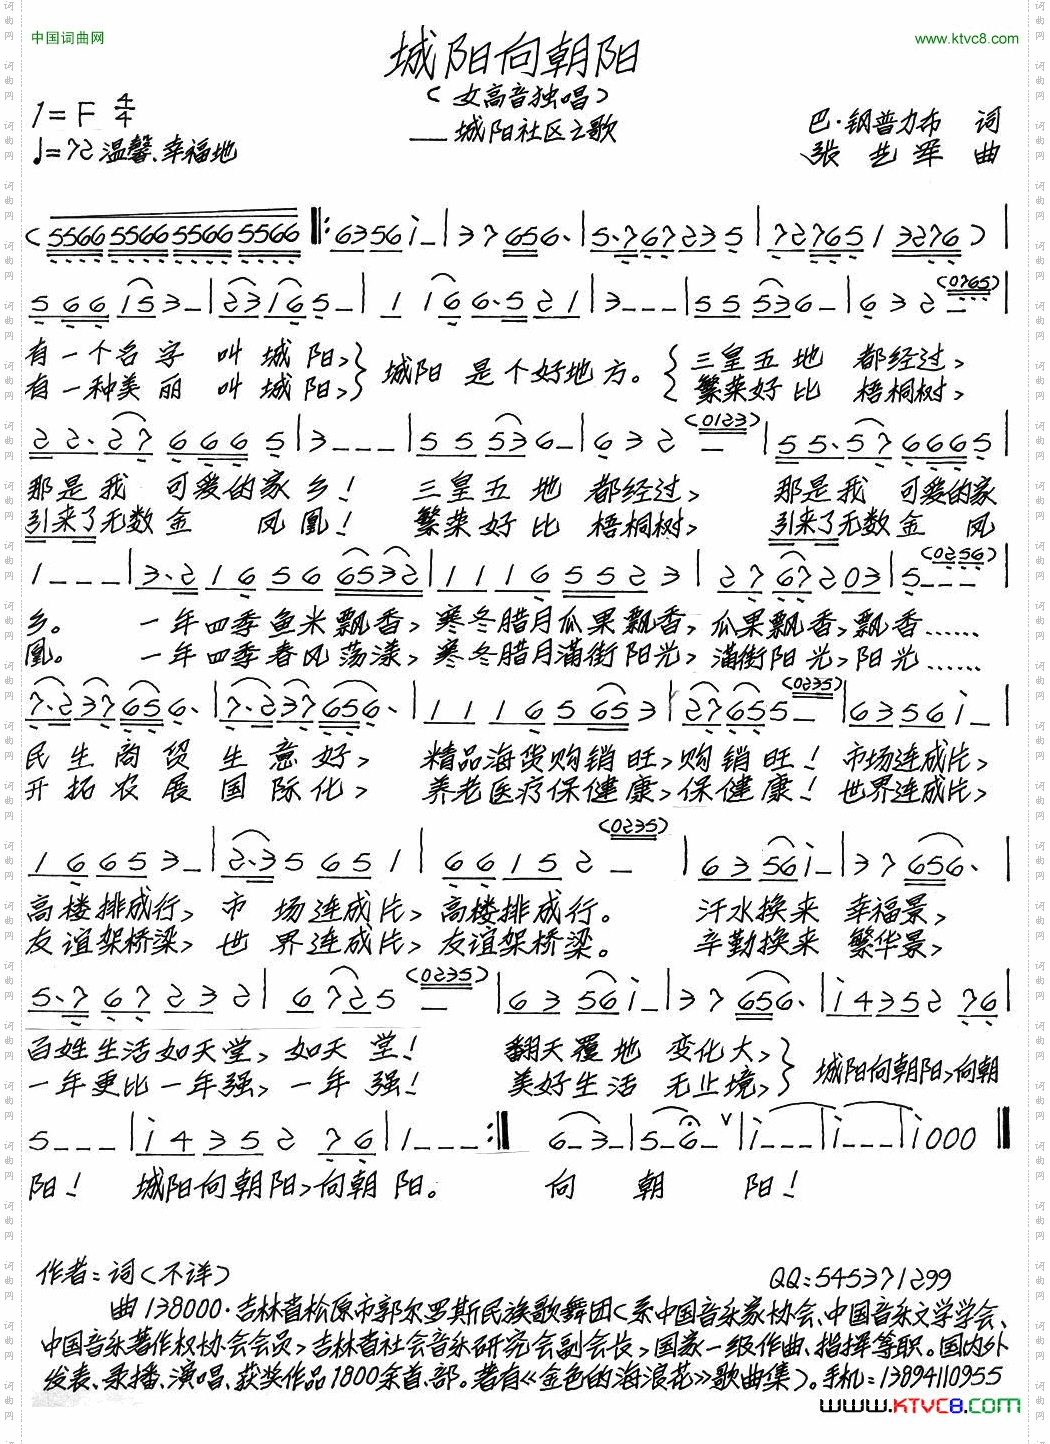 中国词曲网
www.ktvc8.com
城阳向朝阳
(女高音独唱)
——城阳社区之歌
1=F 4/4
♩=72 温馨、幸福地
巴·钢普力布 词
张艺军 曲
(5566 5566 5566 5566 ‖: 6356 i - | 3 7 656· | 5·7672 3 5 | 72765 1 3276 ) |
5 66 153 - | 23165 - | 1 16 6·5 2 1 | 3 - - - | 5 5 536 - | 6 3 2 (0765) |
有一个名字 叫城阳,} 城阳 是个好地方。 {三皇五地 都经过,
有一种美丽 叫城阳,} {繁荣好比 梧桐树,
2 2·27 6 66 5 | 3 - - - | 5 5 536 - | 6 3 2 (0123) - | 5 5·57 6665 |
那是我 可爱的家乡! 三皇五地 都经过, 那是我 可爱的家
引来了无数金 凤凰! 繁荣好比 梧桐树, 引来了无数金 凤
1 - - - | 3·2 1 6 5 6 6532 | 1 1 1 6 5 5 2 3 | 27 672 03 | 5 - - - (0256) |
乡。 一年四季鱼米飘香,寒冬腊月瓜果飘香,瓜果飘香,飘香……
凰。 一年四季春风荡漾,寒冬腊月满街阳光,满街阳光,阳光……
7·237 656· | 7·237 656· | 1 1 1 6 5 65 3 | 27655 - (0235) | 6356 i - |
民生商贸生意好, 精品海货购销旺,购销旺! 市场连成片,
开拓农展国际化, 养老医疗保健康,保健康! 世界连成片,
1 6 6 5 3 - | 2·3 5 6 5 1 | 6 6 1 5 2 - (0235) | 6 3 56 i - | 3 7 656· |
高楼排成行, 市场连成片,高楼排成行。 汗水换来 幸福景,
友谊架桥梁, 世界连成片,友谊架桥梁。 辛勤换来 繁华景,
5·7 6 7 2 3 2 | 6 72 5 - (0235) | 6 3 56 i - | 3 7 656· | i 4 3 5 2 7 6 |
百姓生活如天堂,如天堂! 翻天覆地 变化大,} 城阳向朝阳,向朝
一年更比一年强,一年强! 美好生活 无止境,}
5 - - - | i 4 3 5 2 7 6 | 1 - - - :‖ 6 - 3 - | 5 - 6 - ∨ | i - - - | i - - - | i 0 0 0 ‖
阳! 城阳向朝阳,向朝阳。 向 朝 阳!
作者:词(不详)
QQ:545371299
曲138000·吉林省松原市郭尔罗斯民族歌舞团(系中国音乐家协会、中国音乐文学学会、
中国音乐著作权协会会员,吉林省社会音乐研究会副会长,国家一级作曲、指挥等职。国内外
发表、录播、演唱、获奖作品1800余首、部。著有《金色的海浪花》歌曲集)。手机:13894110955
www.KTVC8.com